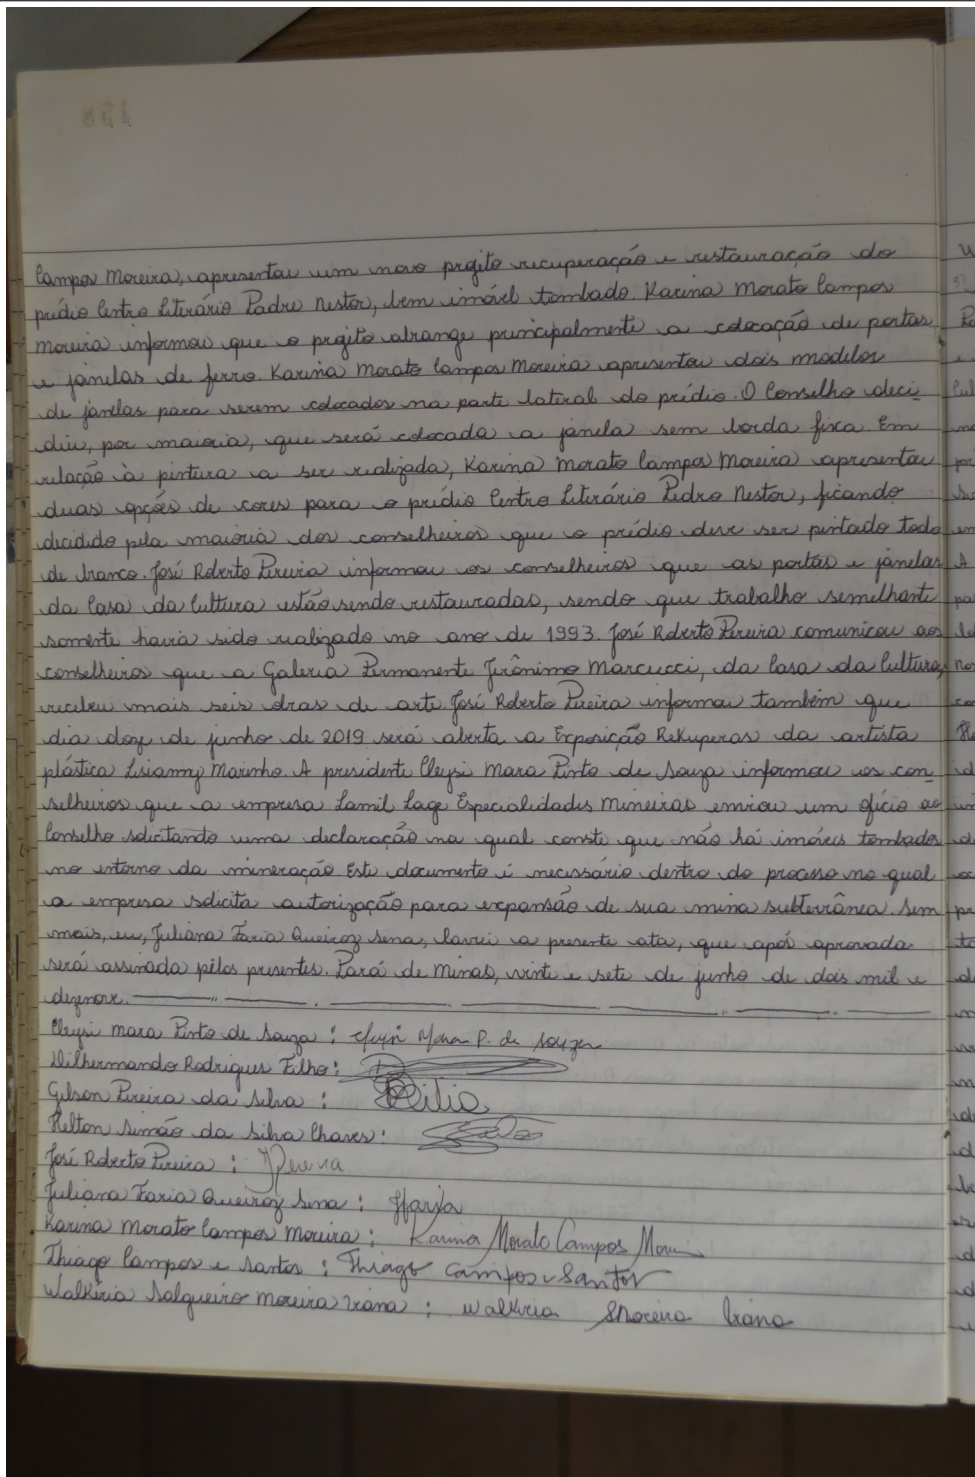 Campos Moreira, apresentou um novo projeto recuperação e restauração do
prédio Centro Literário Padre Nestor, bem imóvel tombado. Karina Morato Campos
Moreira informou que o projeto abrange principalmente a colocação de portas
e janelas de ferro. Karina Morato Campos Moreira apresentou dois modelos
de janelas para serem colocados na parte lateral do prédio. O Conselho deci-
diu, por maioria, que será colocada a janela sem borda fixa. Em
relação à pintura a ser realizada, Karina Morato Campos Moreira apresentou
duas opções de cores para o prédio Centro Literário Pedro Nestor, ficando
decidido pela maioria dos conselheiros que o prédio deve ser pintado todo
de branco. José Roberto Pereira informou os conselheiros que as portas e janelas
da Casa da Cultura estão sendo restauradas, sendo que trabalho semelhante
somente havia sido realizado no ano de 1993. José Roberto Pereira comunicou aos
conselheiros que a Galeria Permanente Jerônimo Marcucci, da Casa da Cultura,
recebeu mais seis obras de arte. José Roberto Pereira informou também que
dia doze de junho de 2019 será aberta a Exposição Rekuperas da artista
plástica Lisianny Marinho. A presidente Cleysi Mara Pinto de Souza informou os con-
selheiros que a empresa Lamil Lage Especialidades Mineiras enviou um ofício ao
Conselho solicitando uma declaração na qual conste que não há imóveis tombados
no entorno da mineração. Este documento é necessário dentro do processo no qual
a empresa solicita autorização para expansão de sua mina subterrânea. Sem
mais, eu, Juliana Faria Queiroz Sena, lavrei a presente ata, que após aprovada
será assinada pelos presentes. Pará de Minas, vinte e sete de junho de dois mil e
dezenove.
Cleysi Mara Pinto de Souza : Cleysi Mara P. de Souza
Wilhermando Rodrigues Filho :
Gilson Pereira da Silva :
Helton Simão da Silva Chaves :
José Roberto Pereira : JPereira
Juliana Faria Queiroz Sena : JFaria
Karina Morato Campos Moreira : Karina Morato Campos Moreira
Thiago Campos e Santos : Thiago Campos e Santos
Walkíria Salgueiro Moreira Viana : Walkiria SMoreira Viana